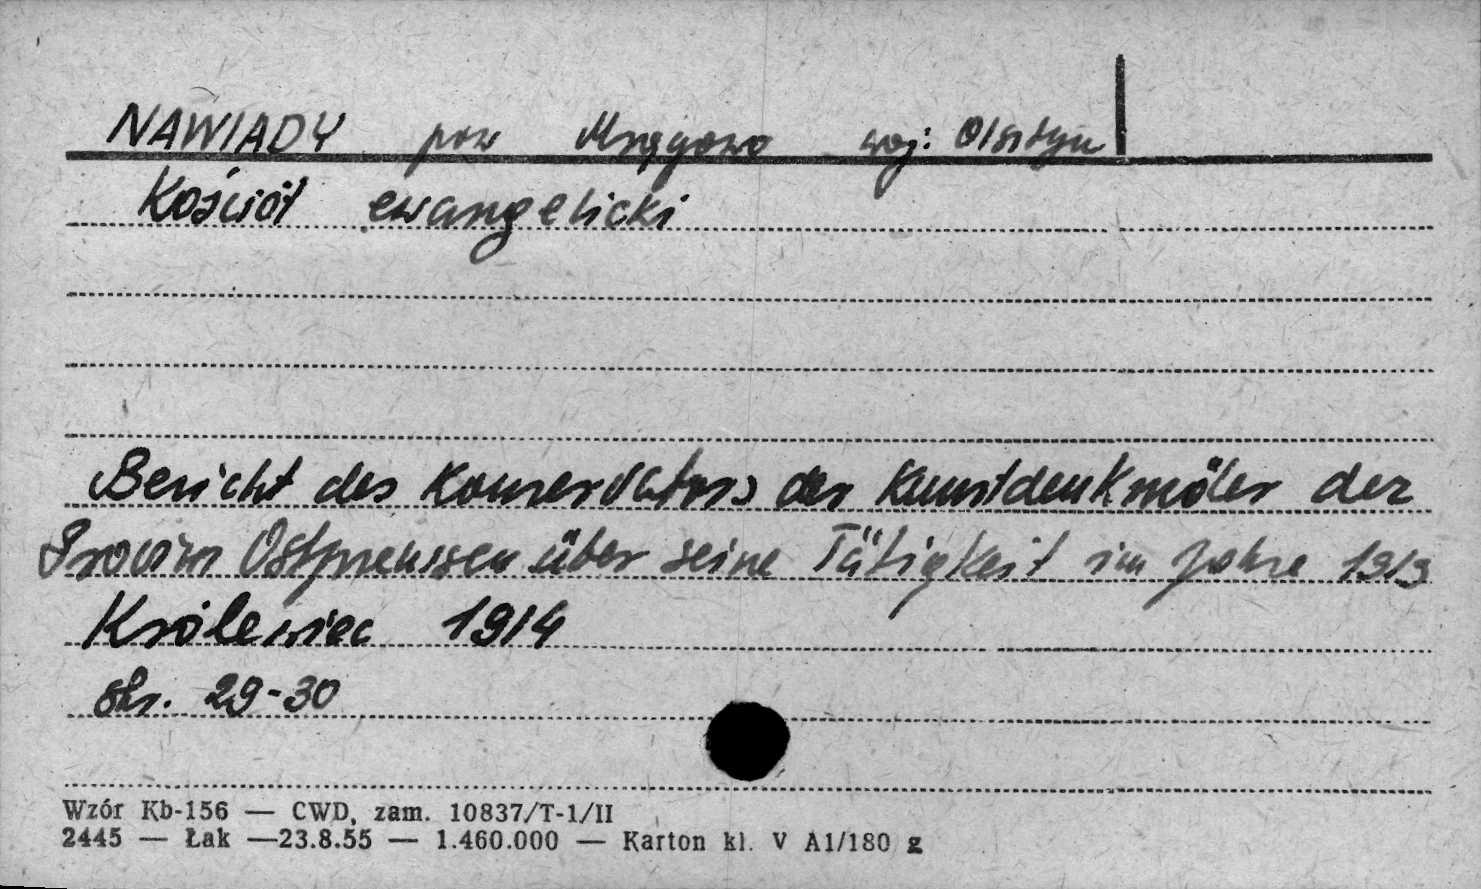 NAWIADY pow Mrągowo woj: Olsztyn
Kościół ewangelicki
Bericht des Konservators der Kunstdenkmäler der
Provinz Ostpreussen über seine Tätigkeit im Jahre 1913
Królewiec 1914
str. 29-30
Wzór Kb-156 — CWD, zam. 10837/T-1/II
2445 — Łak —23.8.55 — 1.460.000 — Karton kl. V A1/180 g